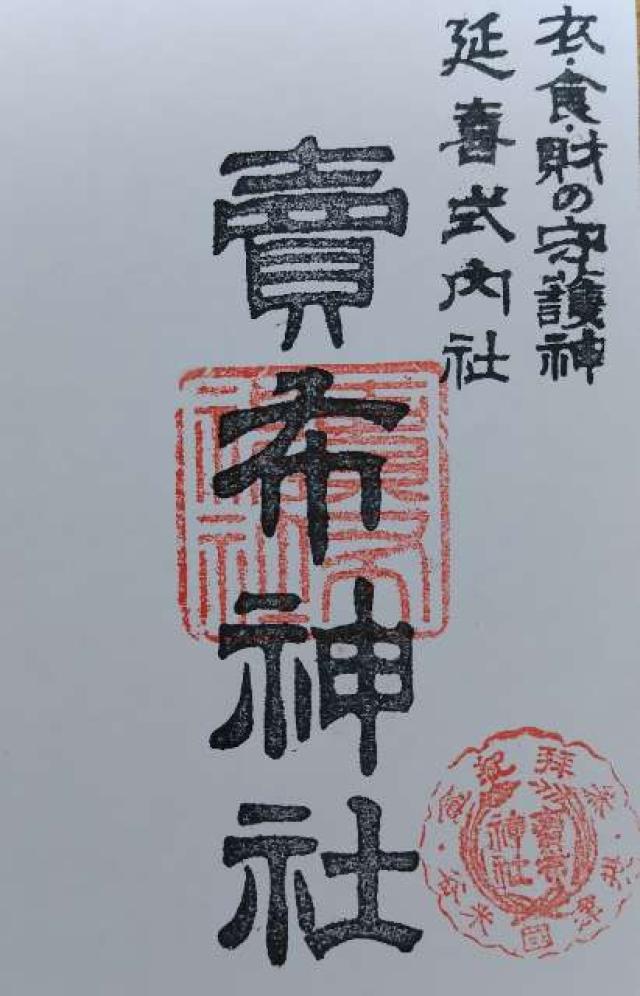 衣・食・財の守護神
延喜式内社
賣布神社
賣布
神社